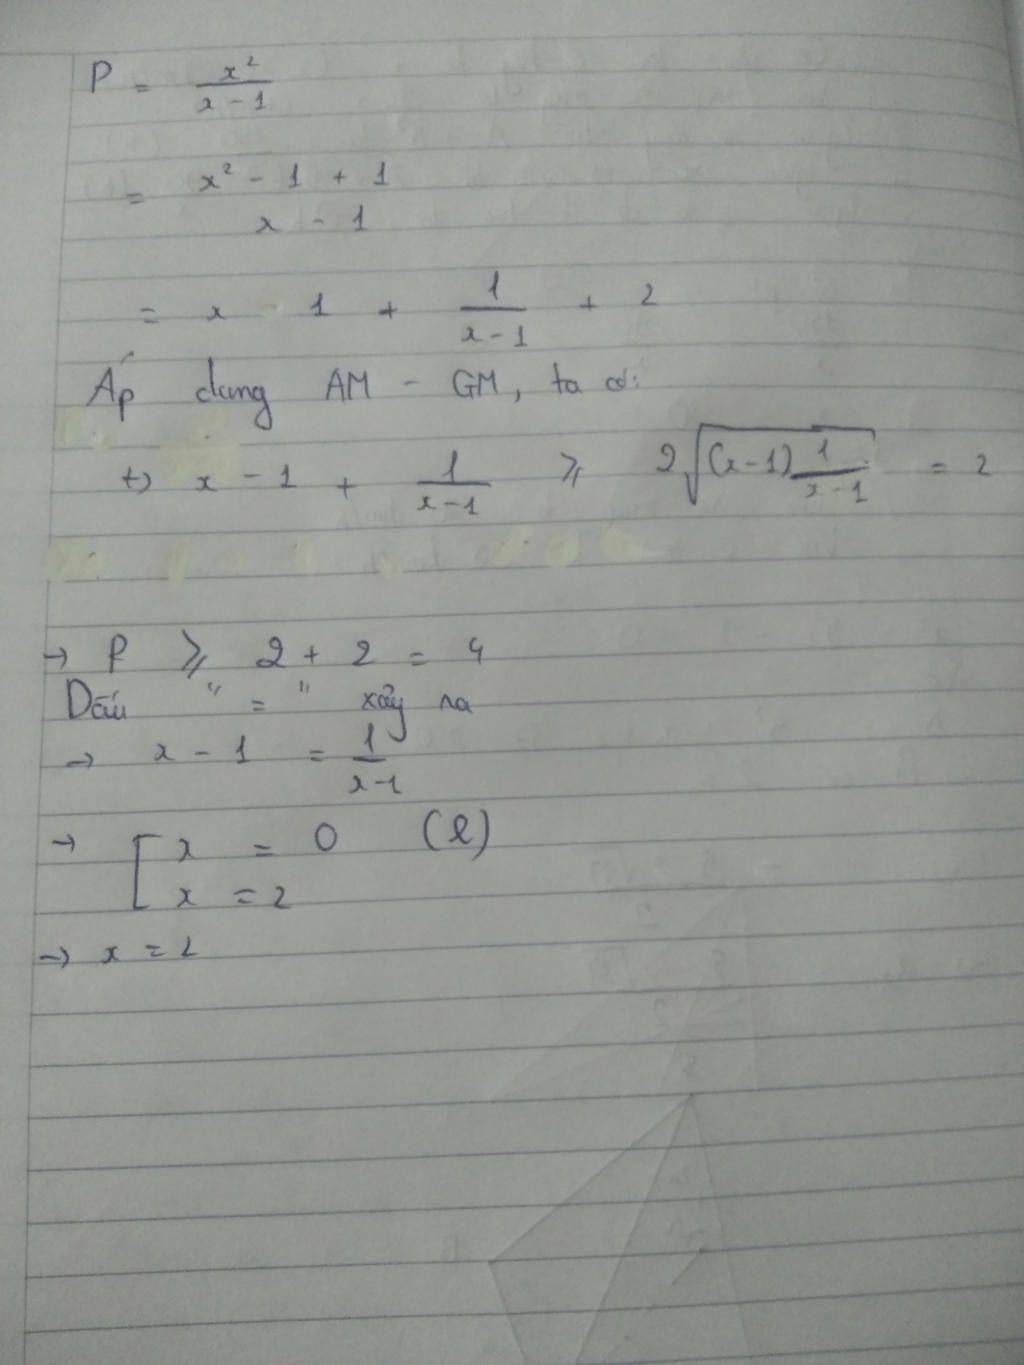 P = x² / (x - 1)
= (x² - 1 + 1) / (x - 1)
= x - 1 + 1/(x - 1) + 2
Áp dung AM - GM, ta có:
+) x - 1 + 1/(x - 1) ⩾ 2√((x - 1) 1/(x - 1)) = 2
→ P ⩾ 2 + 2 = 4
Dấu " = " xảy ra
→ x - 1 = 1/(x - 1)
→ [ x = 0 (l)
x = 2
→ x = 2